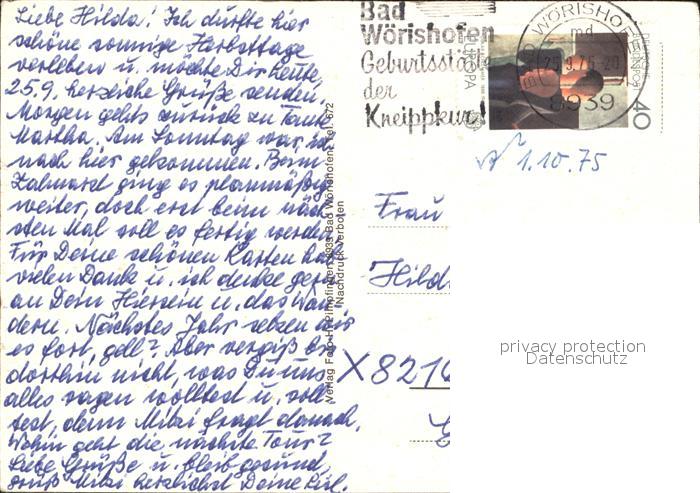 Liebe Hilda! Ich durfte hier
schöne sonnige Herbsttage
verleben u. möchte Dir heute,
25.9. herzliche Grüße senden.
Morgen gehts zurück zu Tante
Martha. Am Sonntag war ich
nach hier gekommen. Beim
Zahnarzt ging es planmäßig
weiter, doch erst beim näch-
sten Mal soll es fertig werden.
Für Deine schönen Karten hab
vielen Dank u. ich denke gern
an Dein Hiersein u. das Wan-
dern. Nächstes Jahr setzen wir
es fort, gell? Aber vergiß bis
dorthin nicht, was Du uns
alles sagen wolltest u. soll-
test, denn Mitzi fragt danach.
Wohin geht die nächste Tour?
Liebe Grüße u. bleib gesund,
grüß Mitzi herzlichst Deine
Verlag Foto-H. Pimpfinger 8939 Bad Wörishofen Tel. 672
Nachdruck verboten
Bad
Wörishofen
Geburtsstätte
der
Kneippkur!
BAD WÖRISHOFEN
md
25.9.75-20
8939
EUROPA
DEUTSCHE
BUNDESPOST
40
1.10.75
Frau
Hild
X 821
privacy protection
Datenschutz